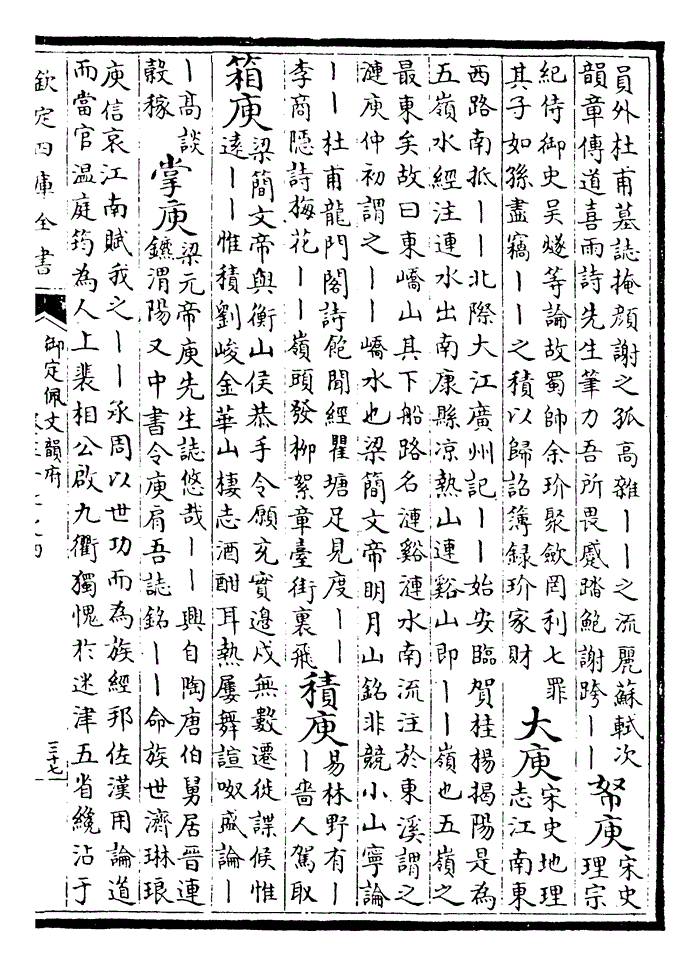 員外杜甫墓誌掩顔謝之孤高雜丨丨之流麗蘇軾次
韻章傳道喜雨詩先生筆力吾所畏蹙踏鮑謝跨丨丨
帑庾
宋史
理宗
紀侍御史吴燧等論故蜀帥余玠聚斂罔利七罪
其子如孫盡竊丨丨之積以歸詔簿録玠家財
大庾
宋史地理
志江南東
西路南抵丨丨北際大江廣州記丨丨始安臨賀桂楊揭陽是為
五嶺水經注連水出南康縣凉熱山連谿山即丨丨嶺也五嶺之
最東矣故曰東嶠山其下船路名漣谿漣水南流注於東溪謂之
漣庾仲初謂之丨丨嶠水也梁簡文帝明月山銘非競小山寧論
丨丨杜甫龍門閣詩飽聞經瞿塘足見度丨丨
李商隱詩梅花丨丨嶺頭發柳絮章臺街裏飛
積庾
易林野有丨
丨嗇人駕取
箱庾
梁簡文帝與衡山侯恭手令願充實邉戍無數遷徙諜候惟
逺丨丨惟積劉峻金華山棲志酒酣耳熱屢舞諠呶盛論丨
丨高談
穀稼
掌庾
梁元帝庾先生誌悠哉丨丨興自陶唐伯舅居晉連
鑣渭陽又中書令庾肩吾誌銘丨丨命族世濟琳琅
庾信哀江南賦我之丨丨承周以世功而為族經邦佐漢用論道
而當官温庭筠為人上裴相公啟九衢獨愧於迷津五省纔沾于
欽定四庫全書
御定佩文韻府
三十七